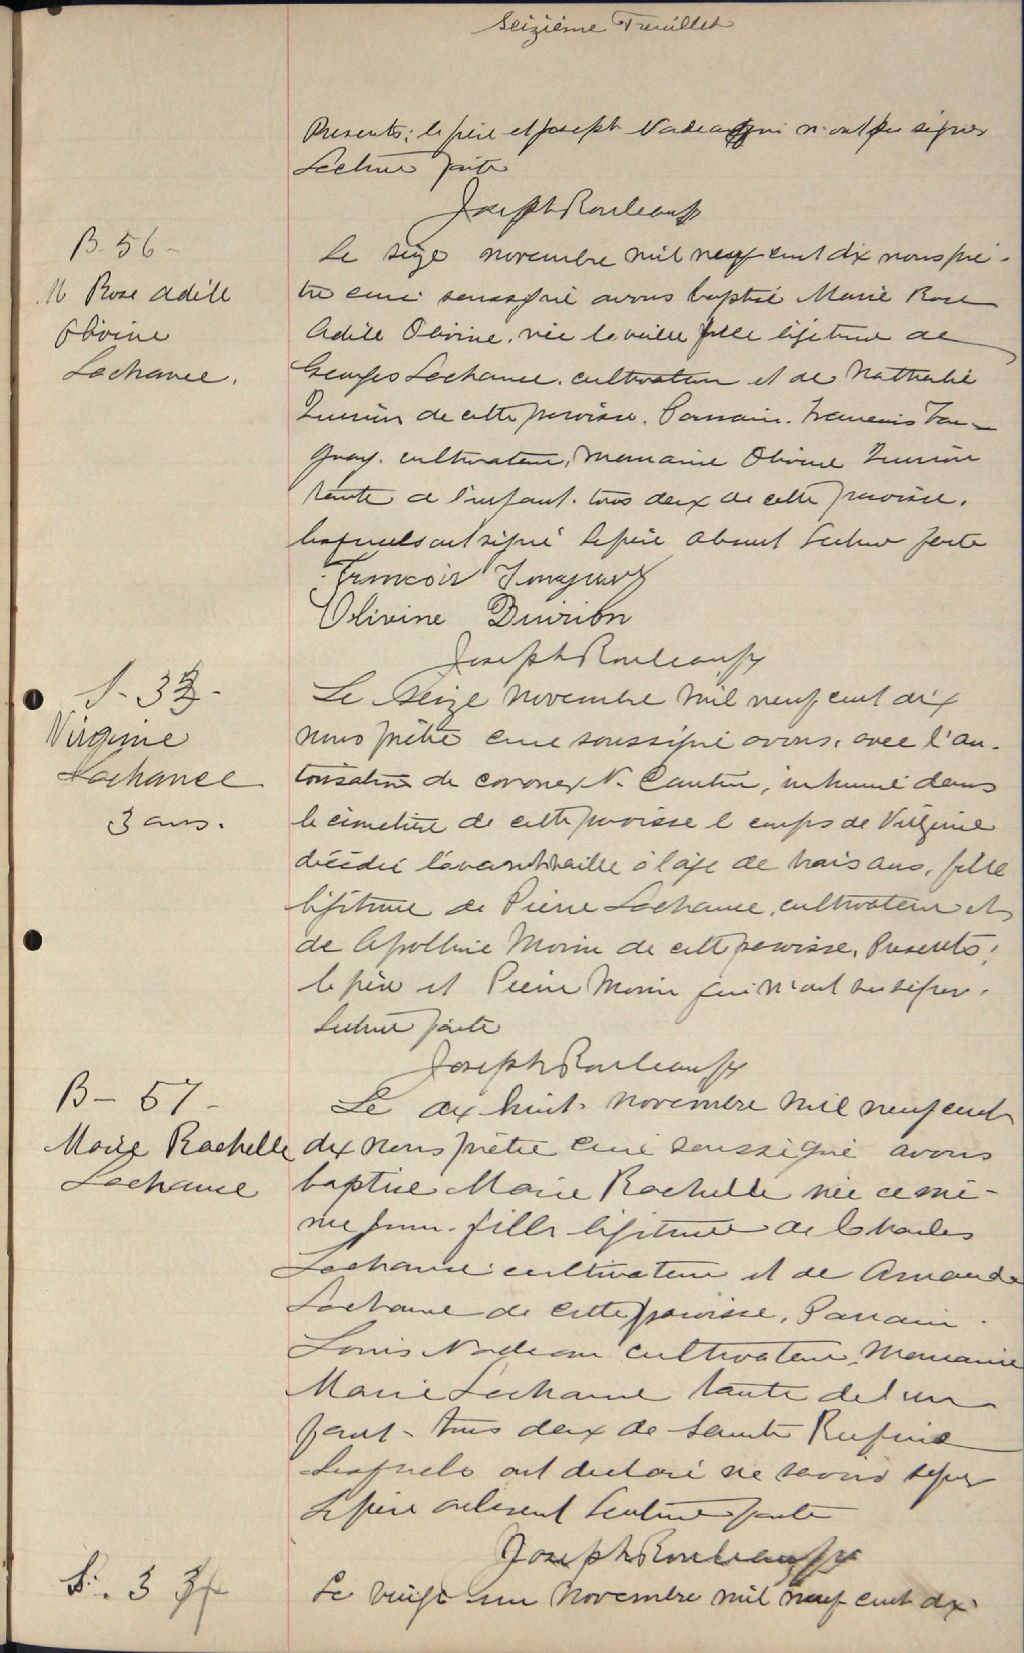 Seizième Feuillet
Présents: le père et Joseph Nadeau qui n'ont pu signer
Lecture faite
Joseph Rouleau ptre
B-56-
M Rose Adèle
Olivine
Lachance.
Le seize novembre mil neuf cent dix nous prê-
tre curé soussigné avons baptisé Marie Rose
Adèle Olivine, née la veille fille légitime de
Georges Lachance, cultivateur et de Nathalie
de cette paroisse. Parrain. François Tan-
guay. cultivateur, Marraine Olivine
tante de l'enfant. tous deux de cette paroisse.
lesquels ont signé le père absent Lecture faite
François Tanguay
Olivine
Joseph Rouleau ptre
S-33-
Virginie
Lachance
3 ans.
Le seize novembre mil neuf cent dix
nous prêtre curé soussigné avons, avec l'au-
torisation de coroner N. Cantin, inhumé dans
le cimetière de cette paroisse le corps de Virginie
décédée l'avant veille à l'âge de trois ans, fille
légitime de Pierre Lachance, cultivateur et
de Apolline Morin de cette paroisse, Présents:
le père et Pierre Morin qui n'ont su signer.
Lecture faite
Joseph Rouleau ptre
B-57-
Marie Rachelle
Lachance
Le dix huit novembre mil neuf cent
dix nous prêtre curé soussigné avons
baptisé Marie Rachelle née ce mê-
me jour. fille légitime de Charles
Lachance cultivateur et de Amanda
Lachance de cette paroisse, Parrain.
Louis Nadeau cultivateur, Marraine
Marie Lachance tante de l'en
fant- tous deux de Sainte Rufine
Lesquels ont déclaré ne savoir signer
Le père absent Lecture faite
Joseph Rouleau ptre
S. 34
Le vingt un novembre mil neuf cent dix